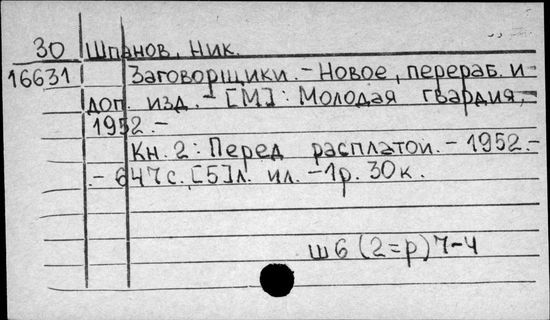 30 Шпанов, Ник.
16631 Заговорщики. - Новое, перераб. и
доп. изд. - [М]: Молодая гвардия,
1952. -
Кн. 2: Перед расплатой. - 1952. -
. - 647 с., [5] л. ил. - 1 р. 30 к.
ш6 (2=р) 7-4